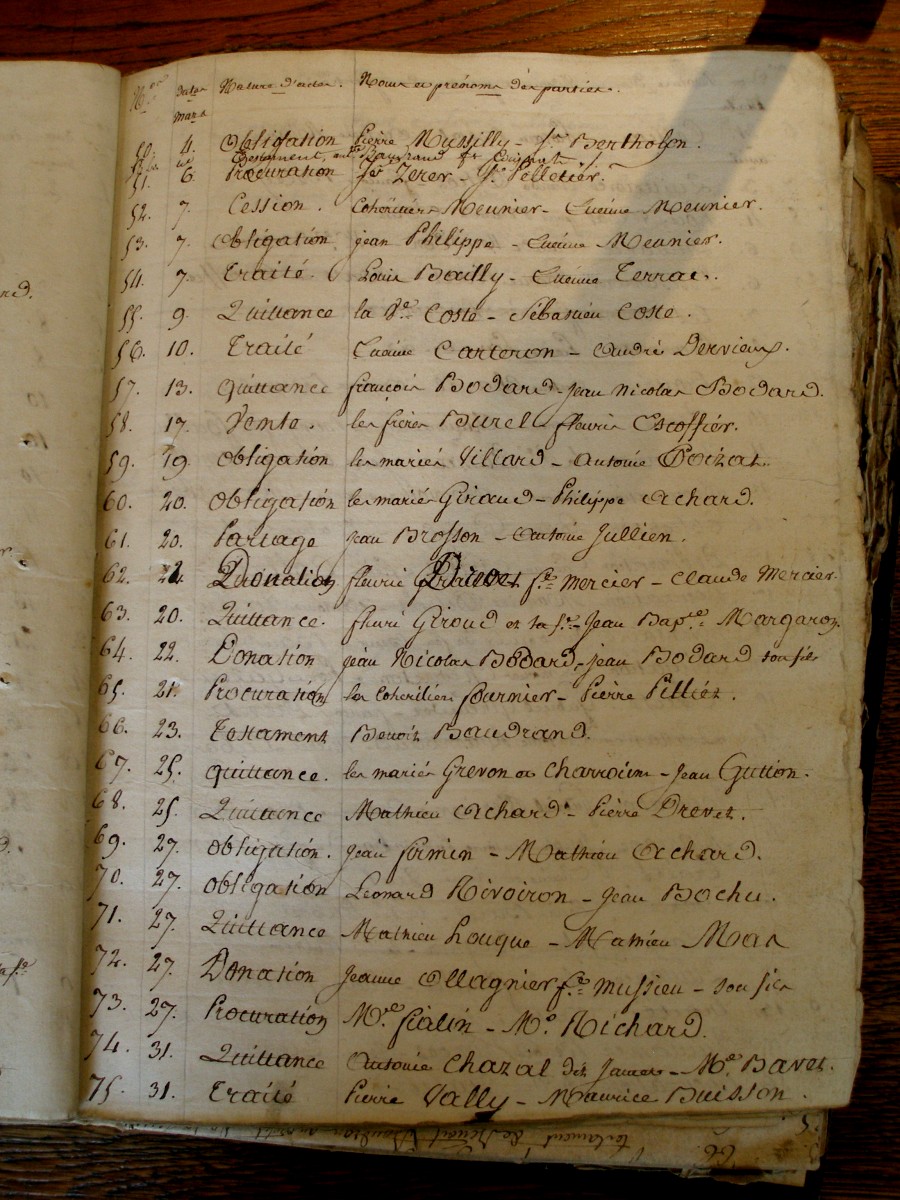 N.os Dates Nature d'actes. Noms et prénoms des parties.
mars
50. 4. Obligation Pierre Mussilly - J.n Bertholon.
Testament, Baynaud
51. 6. Procuration Zerer - J.h Pelletier.
52. 7. Cession. Cohéritiers Meunier - Etienne Meunier.
53. 7. Obligation jean Philippe - Etienne Meunier.
54. 7. Traité. Louis Bailly - Etienne Terrat.
55. 9. Quittance la V.e Coste - Sébastien Coste.
56. 10. Traité Etienne Carteron - André Dervieux.
57. 13. quittance françois Bodard - jean Nicolas Bodard.
58. 17. Vente. les frères Burel fleurie Escoffier.
59. 19. obligation les mariés Villard - Antoine Poizat.
60. 20. obligation les mariés Giraud - Philippe Achard.
61. 20. Partage jean Brosson - Antoine Jullien.
62. 21. Donation fleurie f.e Mercier - Claude Mercier.
63. 20. Quittance. fleuri Giroud et sa f.e - Jean Bap.te Margaron.
64. 22. Donation jean Nicolas Bodard, jean Bodard son fils
65. 21. Procuration les Cohéritiers fournier - Pierre Pilliez.
66. 23. Testament Benoit Baudrand.
67. 25. quittance. les mariés Grevon ou Charroin - Jean Gutton.
68. 25. Quittance Mathieu Achard - Pierre Drevet.
69. 27. obligation. jean firmin - Mathieu Achard.
70. 27. obligation Leonard Rivoiron - Jean Bochu.
71. 27. Quittance Mathieu Louque - Mathieu Mas
72. 27. Donation Jeanne Ollagnier f.e Mussieu - son fils
73. 27. Procuration M.e fialin - M.e Richard.
74. 31. Quittance Antoine Chazal dit James - M.e Bavet.
75. 31. Traité Pierre Vally - Maurice Buisson.
66 testament de Benoit Baudran